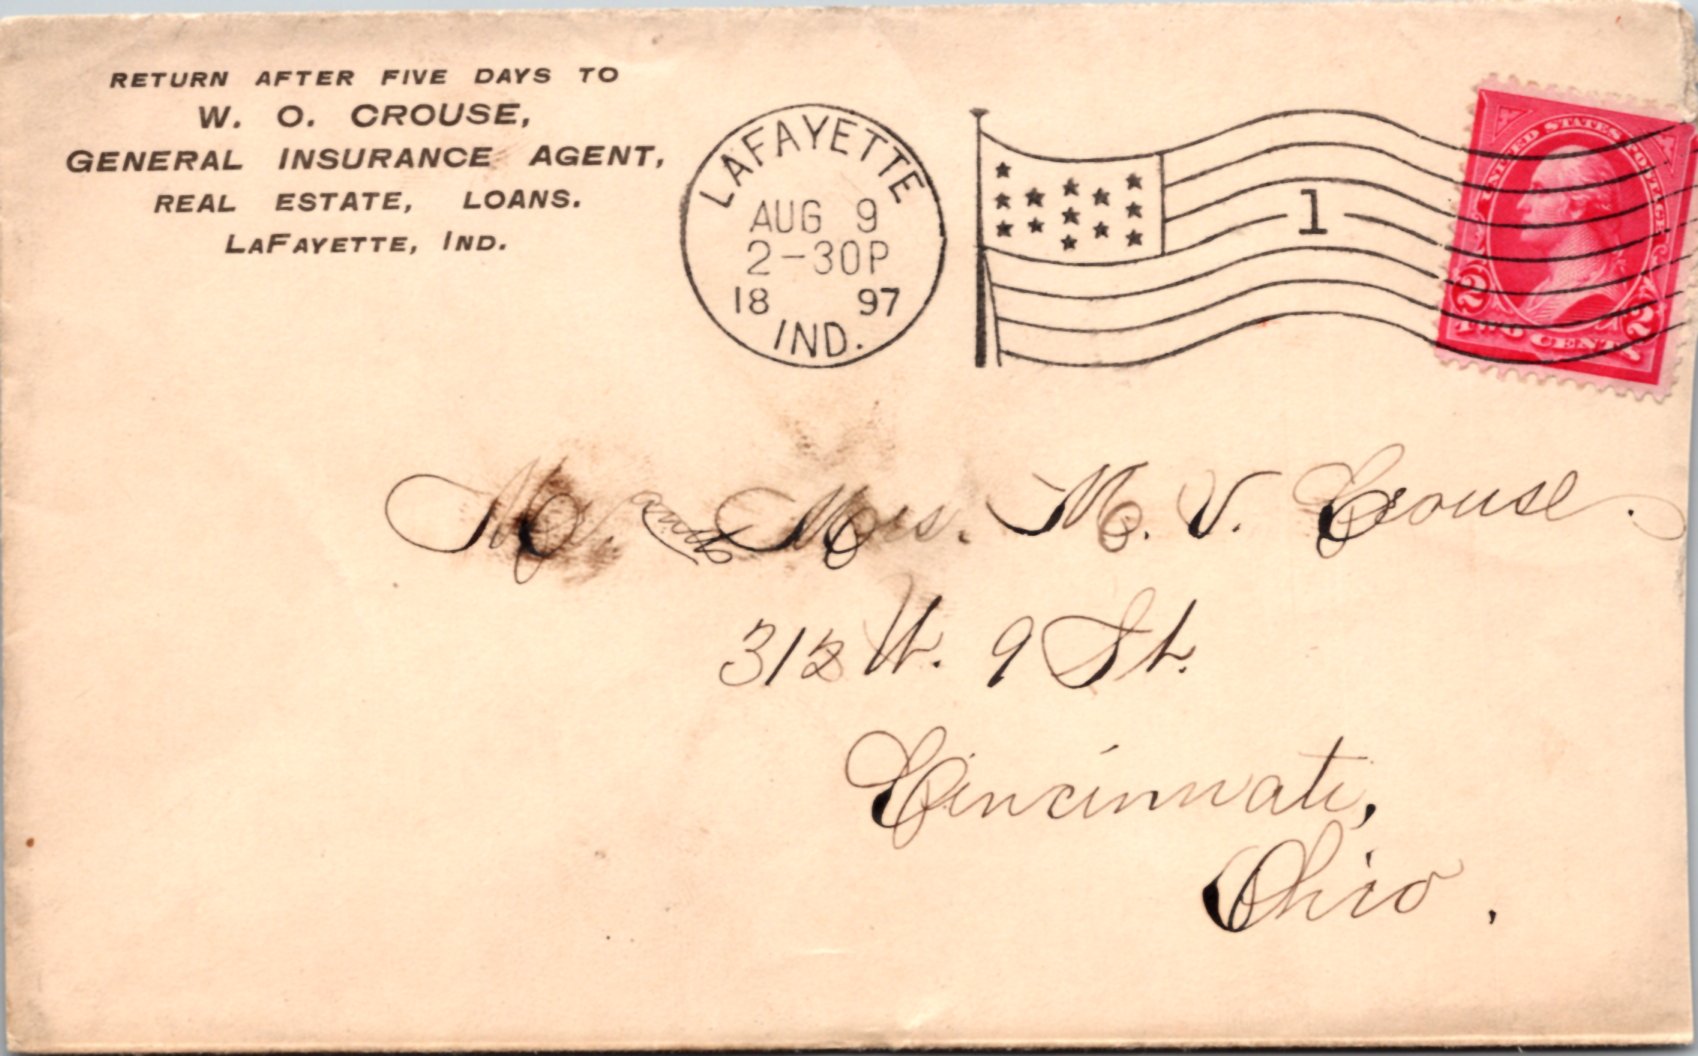 RETURN AFTER FIVE DAYS TO
W. O. CROUSE,
GENERAL INSURANCE AGENT,
REAL ESTATE, LOANS.
LAFAYETTE, IND.
LAFAYETTE
AUG 9
2-30P
18 97
IND.
1
UNITED STATES POSTAGE
2 2
TWO CENTS
Mr. and Mrs. M. V. Crouse.
312 W. 9 St.
Cincinnati,
Ohio.